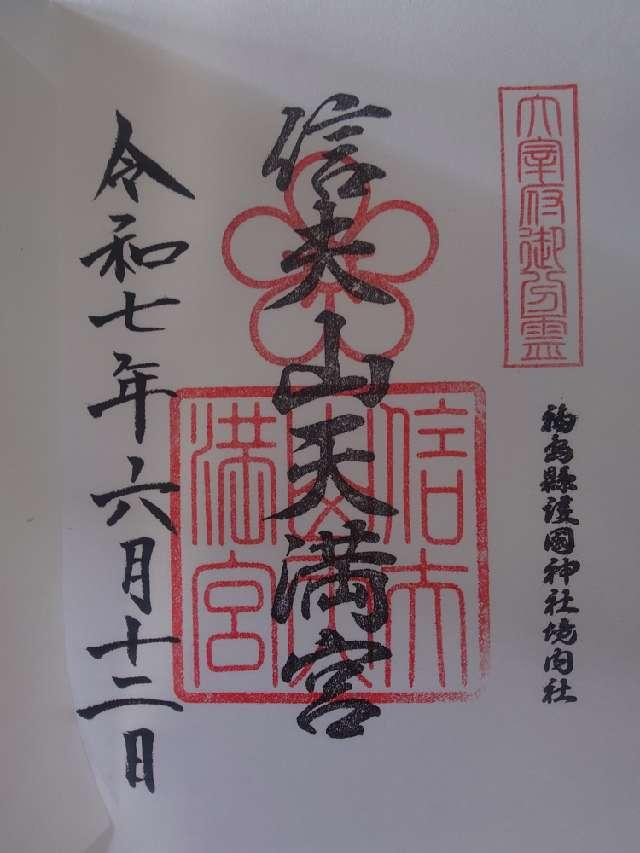 太宰府御分霊
福島縣護國神社境内社
信夫山天満宮
信夫山天満宮
令和七年六月十二日